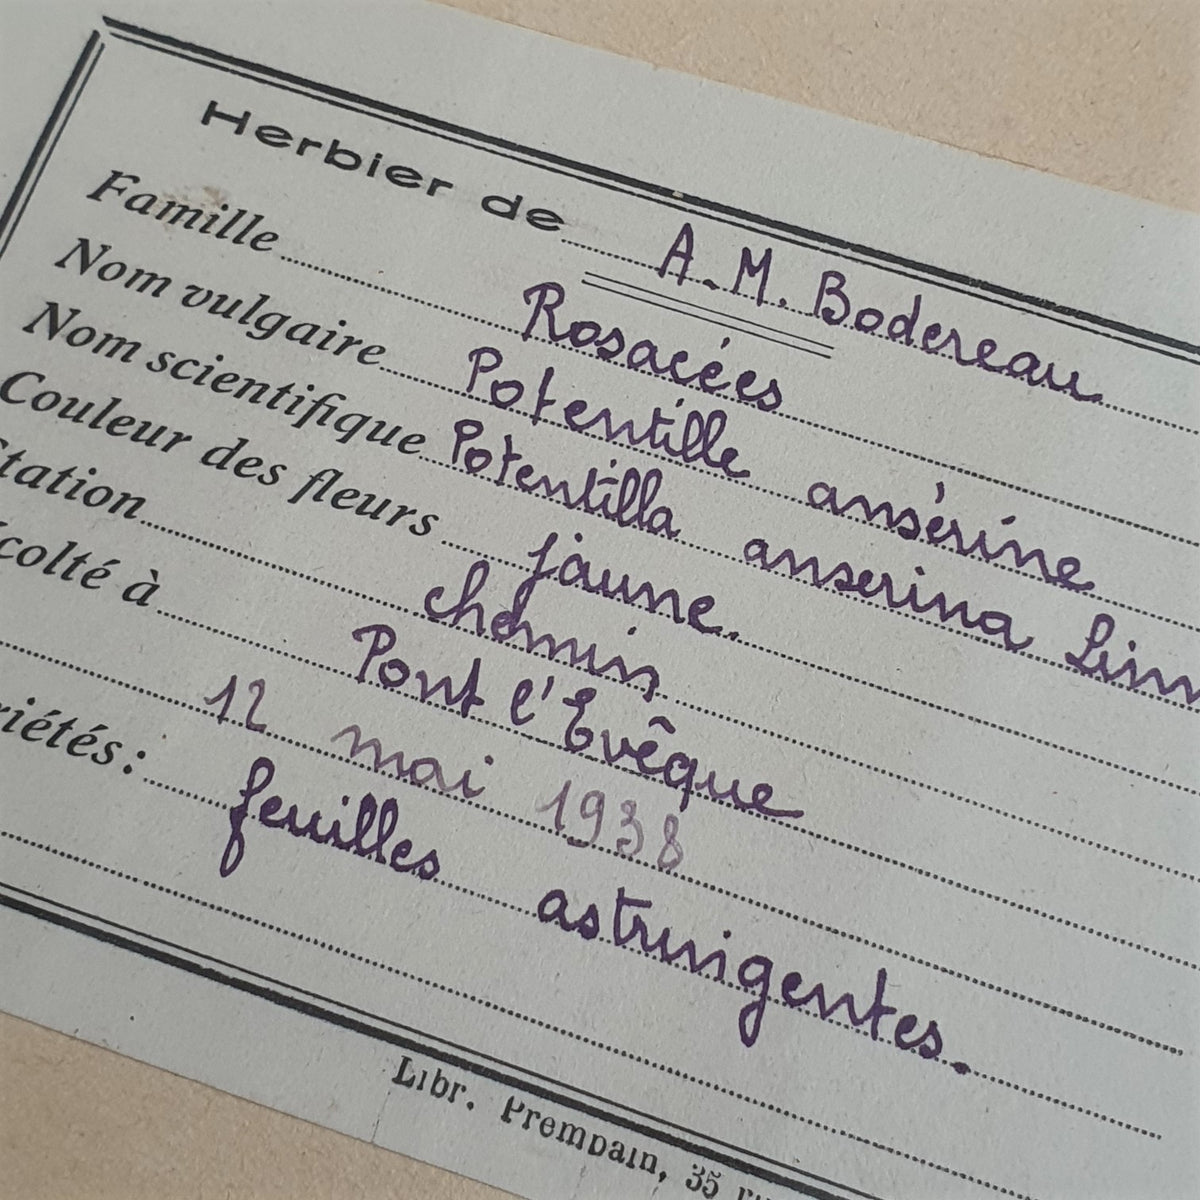 Herbier de A. M. Bodereau
Famille Rosacées
Nom vulgaire Potentille ansérine
Nom scientifique Potentilla anserina Linn
Couleur des fleurs jaune.
Station chemin
colté à Pont l'Evêque
12 mai 1938
riétés: feuilles astringentes.
Libr. Prempain, 35